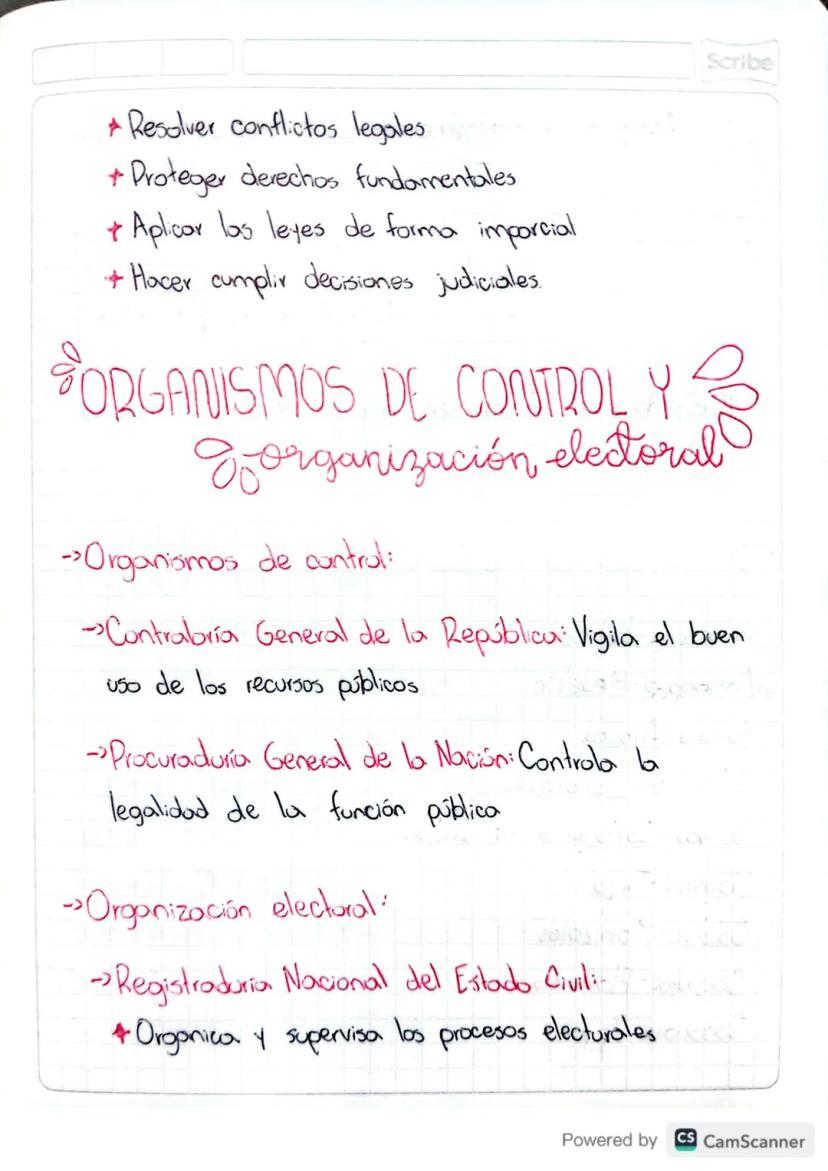 Scribe
+ Resolver conflictos legales
+ Proteger derechos fundamentales
+ Aplicar las leyes de forma imparcial
+ Hacer cumplir decisiones judiciales.
ORGANISMOS DE CONTROL Y
organización electoral
->Organismos de control:
->Contraloría General de la República: Vigila el buen
uso de los recursos públicos
->Procuraduría General de la Nación: Controla la
legalidad de la función pública
->Organización electoral:
->Registraduría Nacional del Estado Civil:
+ Organica y supervisa los procesos electurales
Powered by CS CamScanner